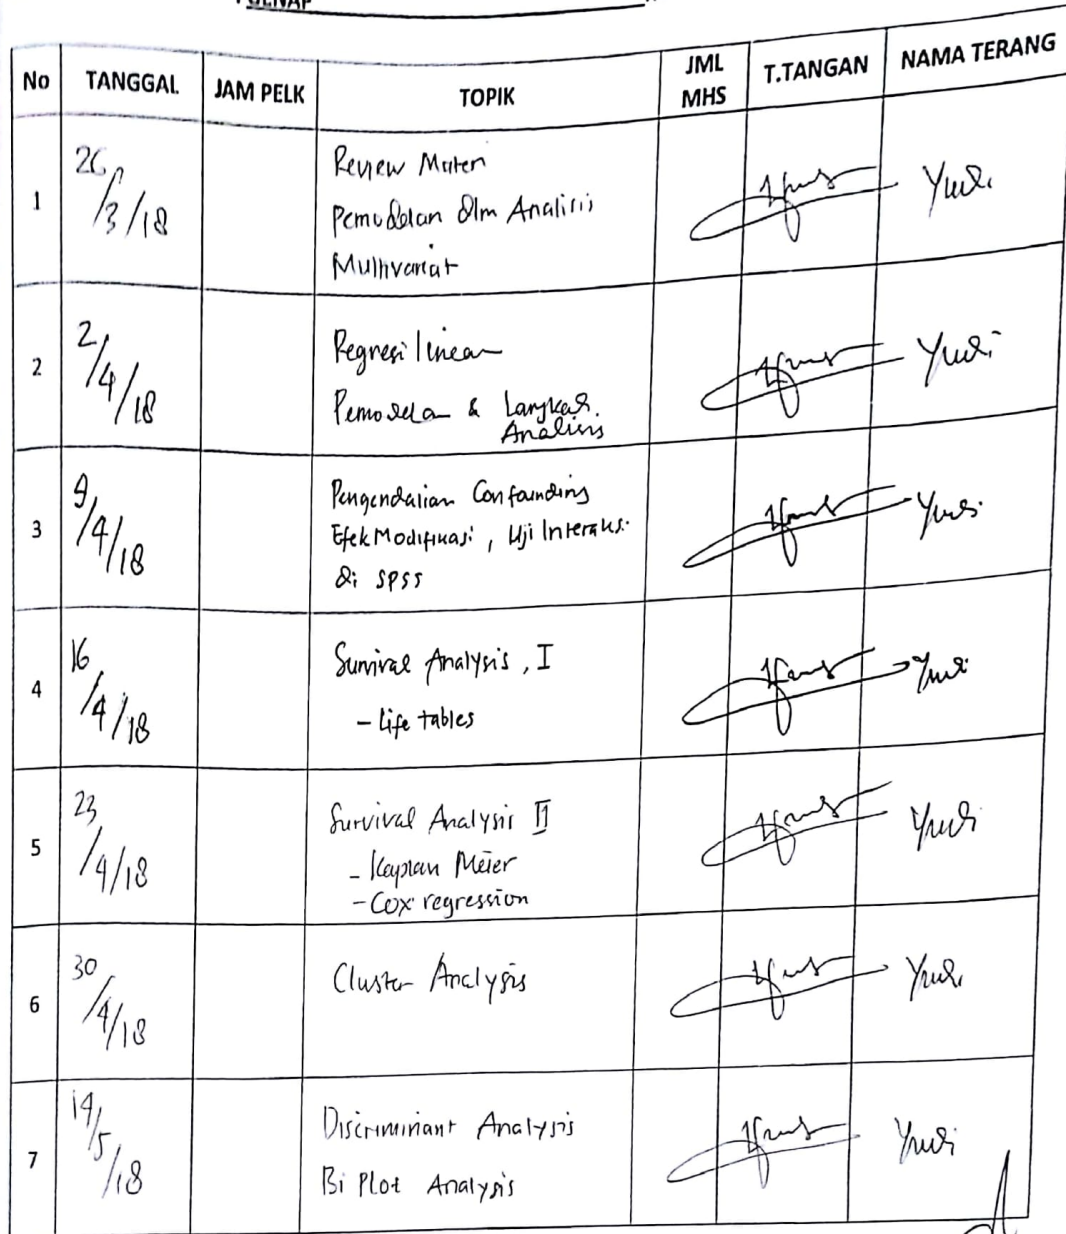 No TANGGAL JAM PELK TOPIK JML MHS T.TANGAN NAMA TERANG
1 26/3/18 Review Materi Yudi
Pemodelan dlm Analisis
Multivariat
2 2/4/18 Regresi linear Yudi
Pemodelan & Langkah
Analisis
3 9/4/18 Pengendalian Confounding Yudi
Efek Modifikasi, Uji Interaksi
di SPSS
4 16/4/18 Survival Analysis, I Yudi
- Life tables
5 23/4/18 Survival Analysis II Yudi
- Kaplan Meier
- Cox regression
6 30/4/18 Cluster Analysis Yudi
7 14/5/18 Discriminant Analysis Yudi
Bi Plot Analysis